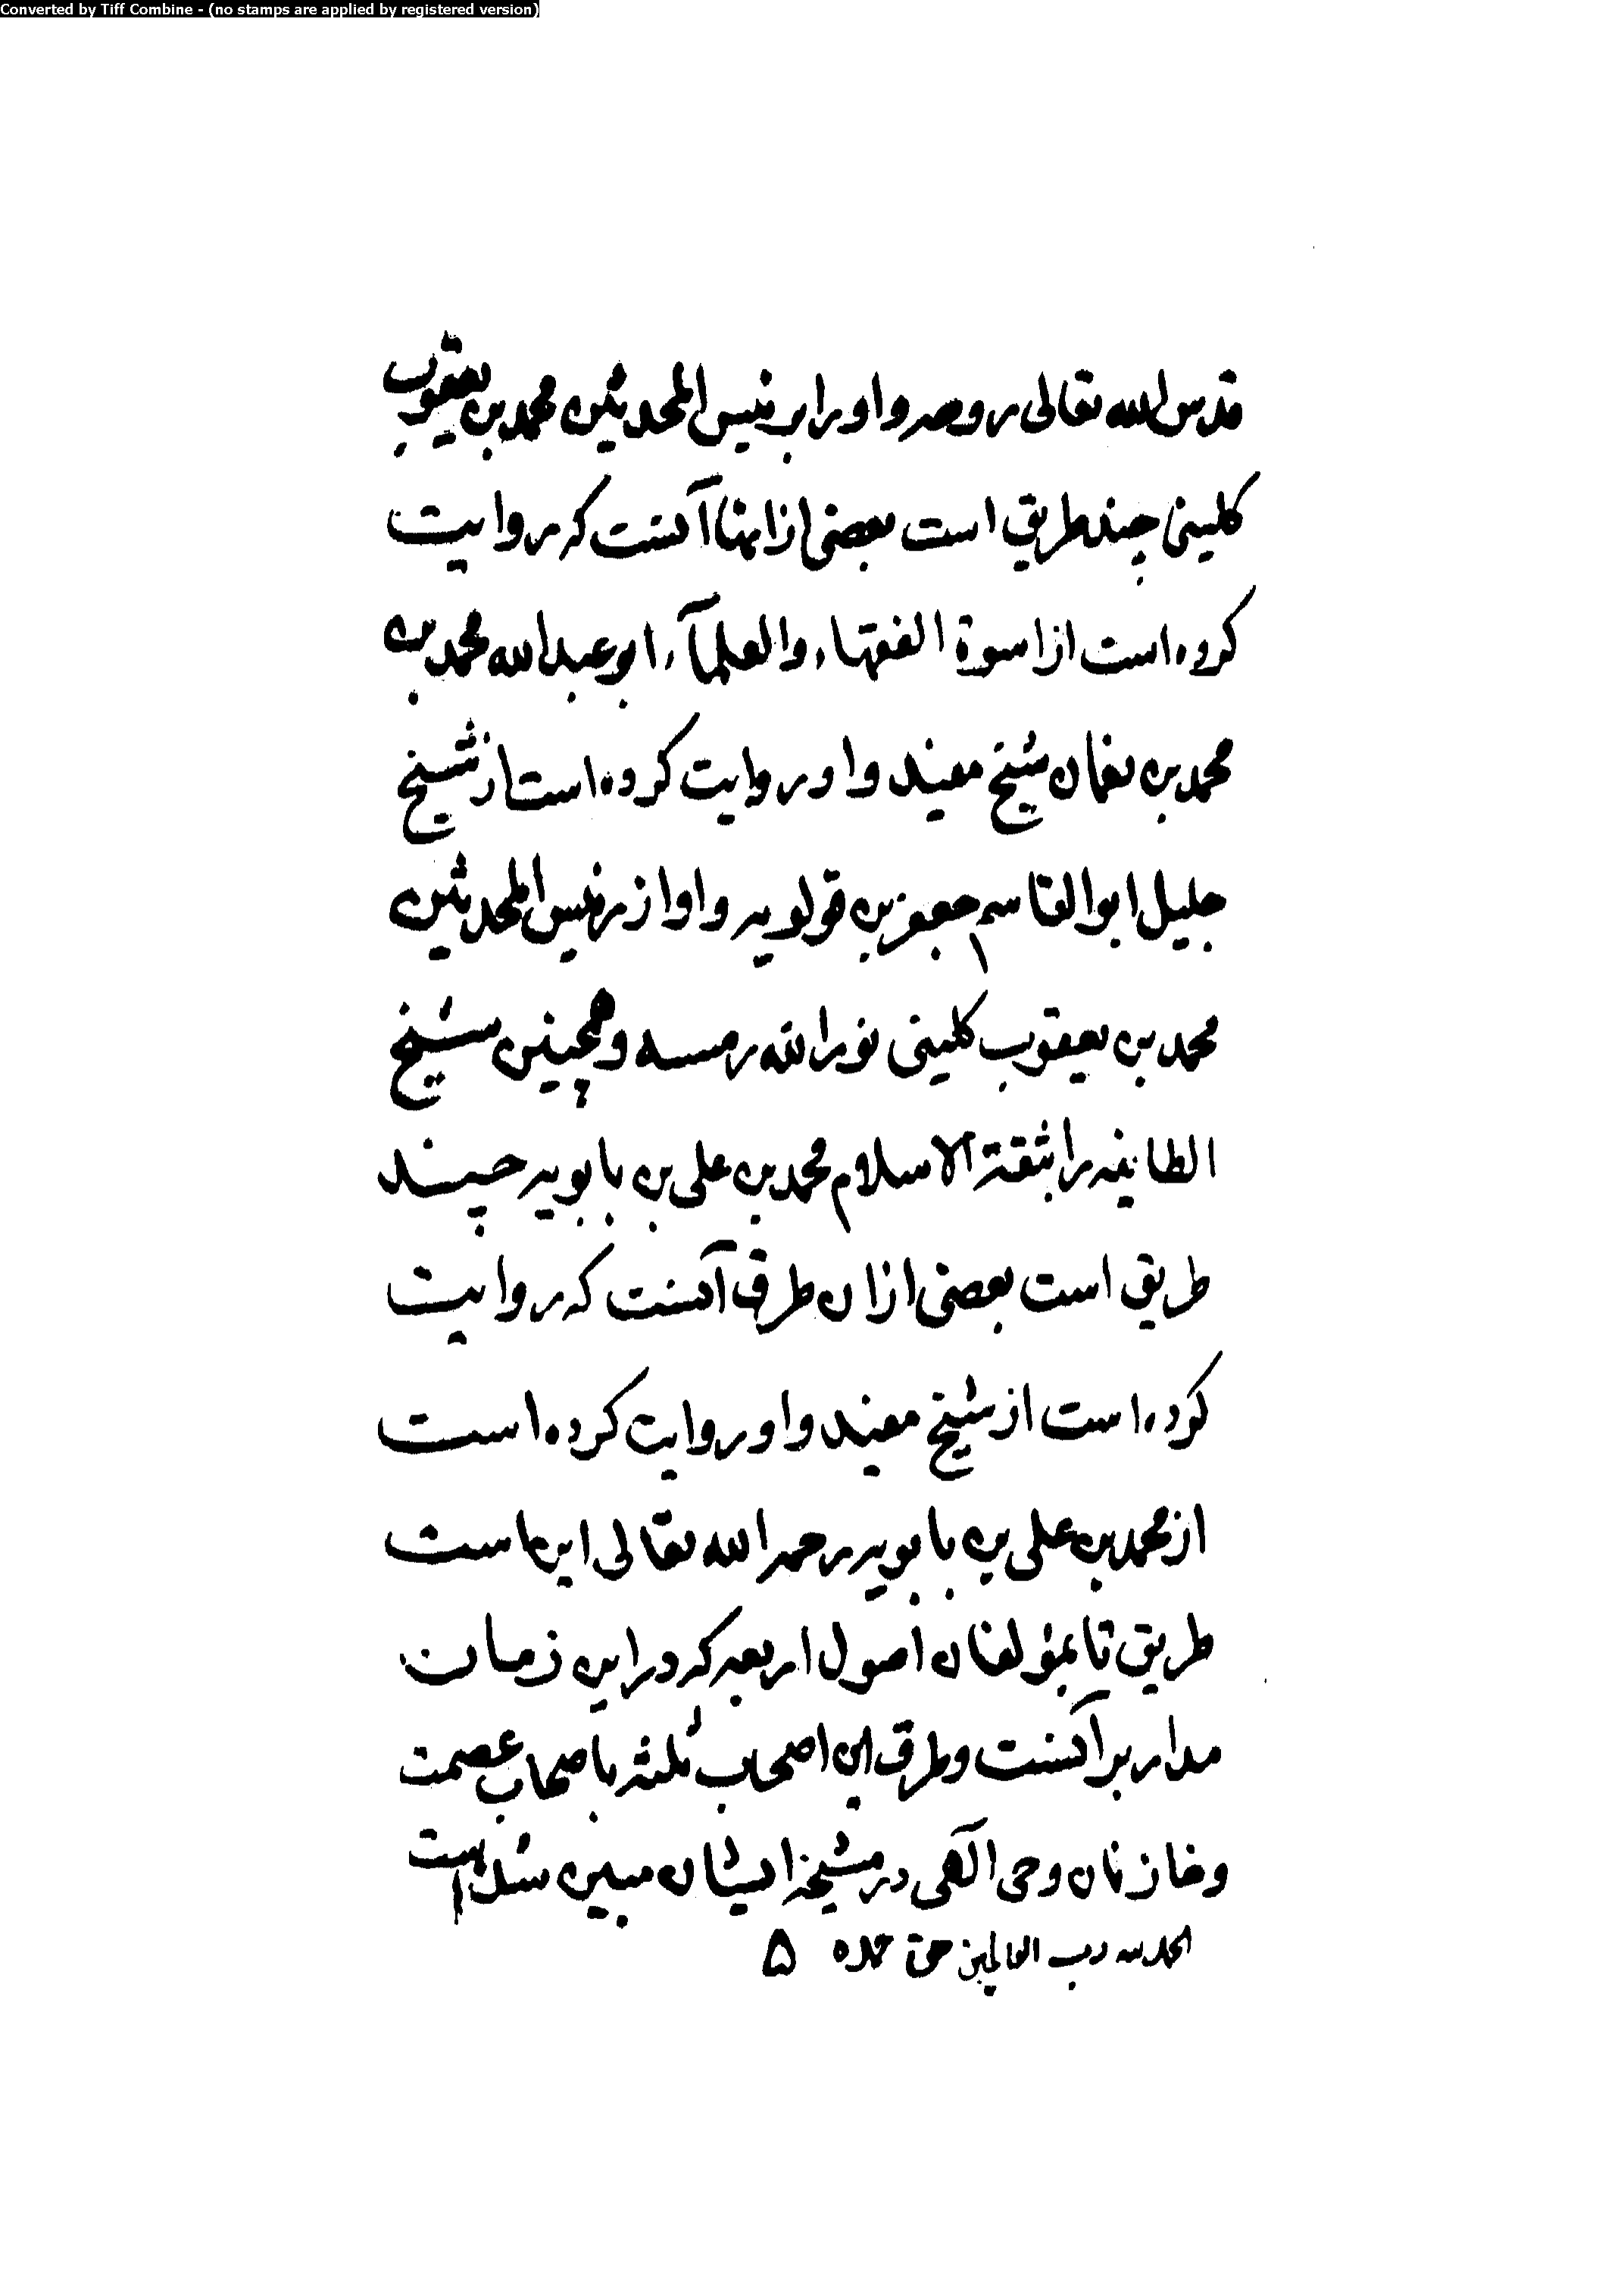 Converted by Tiff Combine - (no stamps are applied by registered version)
قدس الله تعالی روحه و او را برئیس المحدثین محمد بن یعقوب
کلینی چند طریق است بعضی از اینها آنست که روایت
کرده است از اسوة الفقهاء والعلمآء ابو عبدالله محمد بن
محمد بن نعمان شیخ مفید و او روایت کرده است از شیخ
جلیل ابوالقاسم جعفر بن قولویه و او از رئیس المحدثین
محمد بن یعقوب کلینی نور الله رمسه و همچنین شیخ
الطایفه را بثقة الاسلام محمد بن علی بن بابویه چند
طریق است بعضی از ان طرق آنست که روایت
کرده است از شیخ مفید و او روایت کرده است
از محمد بن علی بن بابویه رحمه الله تعالی این ماست
طریق تا بمؤلفان اصول اربعه که در این زمان
مدار بر آنست و طرق این اصحاب ثلثه باصحاب عصمت
و خازنان وحی آلهی در مشیخهٔ ایشان مبین شده است
الحمد لله رب العالمین حق حمده ۵